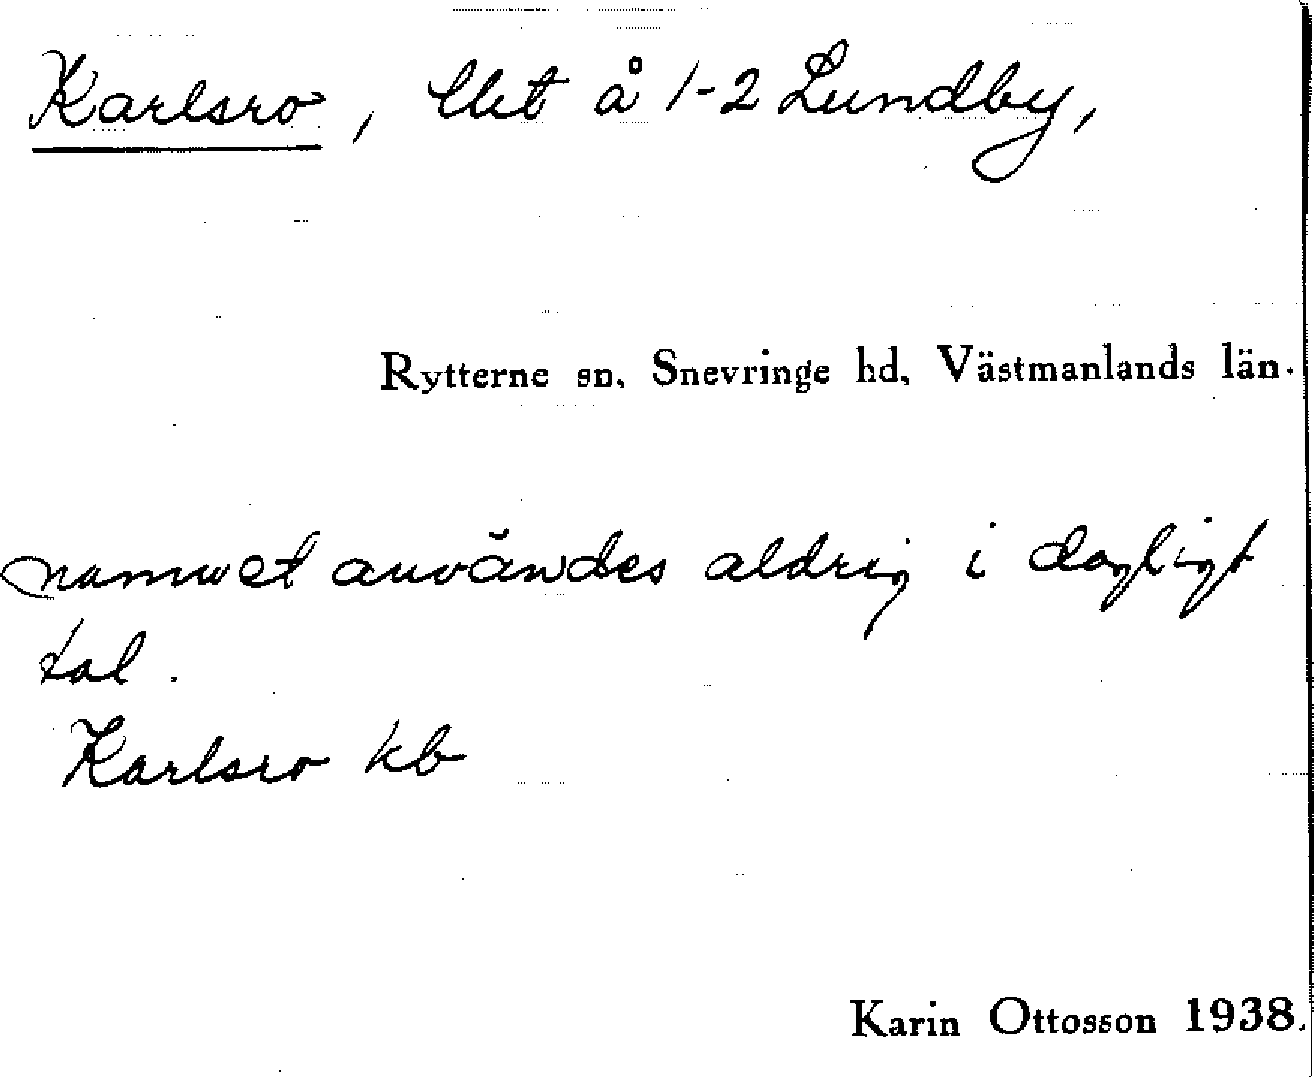 Karlsro, lht å 1-2 Lundby,
Rytterne sn, Snevringe hd, Västmanlands län.
namnet användes aldrig i dagligt
tal.
Karlsro kb
Karin Ottosson 1938.